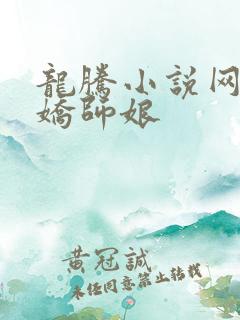 龍騰小説网
嬌師娘
黄冠誠
未经同意禁止转载